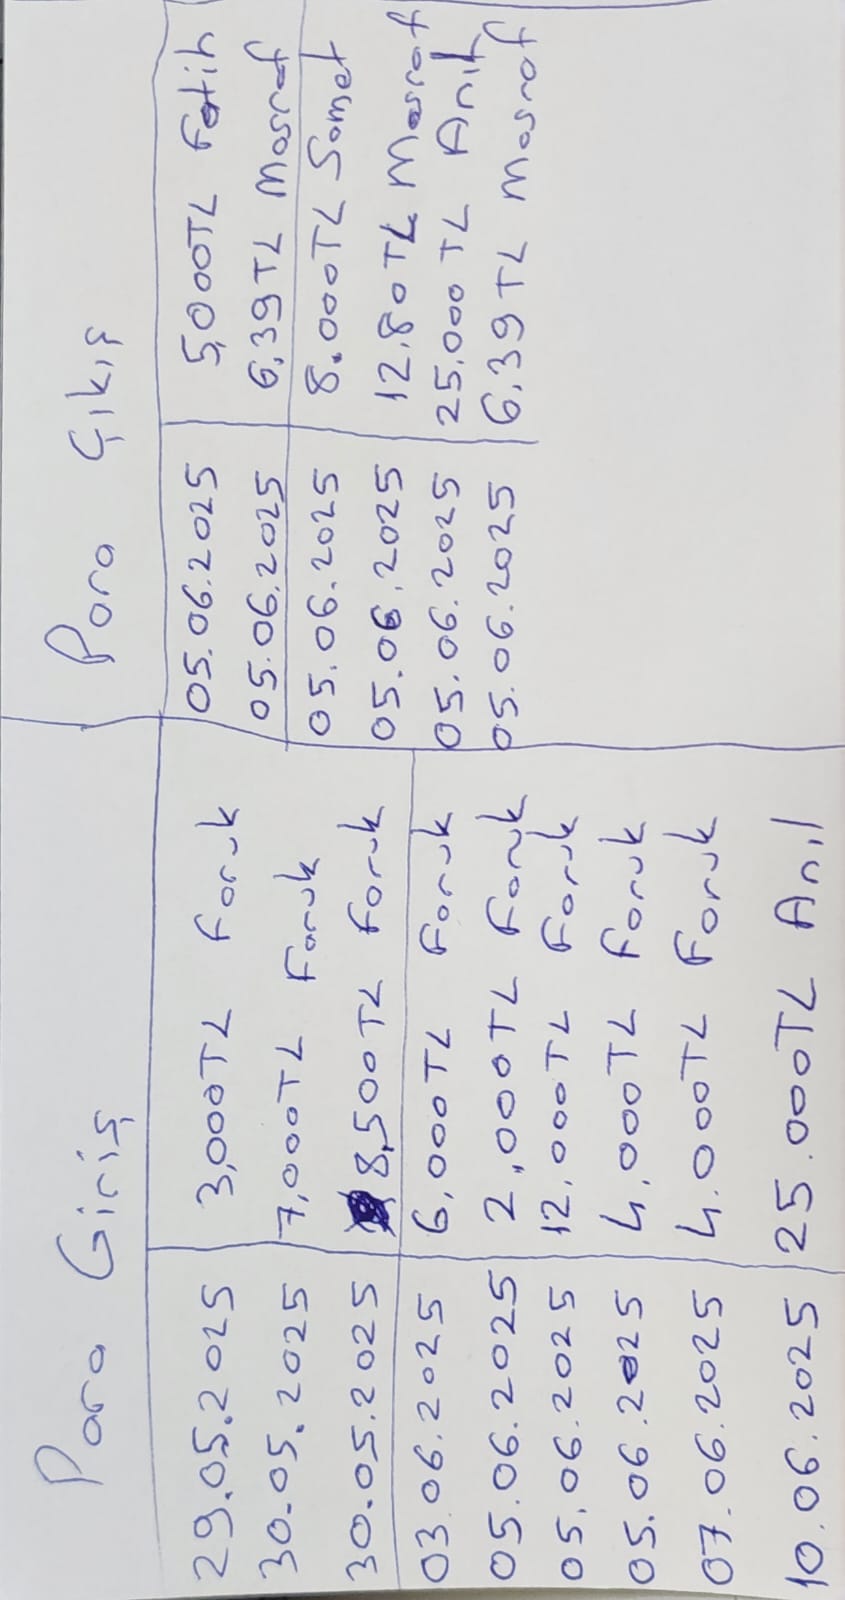 Para Giriş
29.05.2025 3,000TL Faruk
30.05.2025 7,000TL Faruk
30.05.2025 8,500TL Faruk
03.06.2025 6,000TL Faruk
05.06.2025 2,000TL Faruk
05.06.2025 12.000TL Faruk
05.06.2025 4,000TL Faruk
07.06.2025 4.000TL Faruk
10.06.2025 25.000TL Anıl
Para Çıkış
05.06.2025 5,000TL Fatih
05.06.2025 6,39TL Masraf
05.06.2025 8.000TL Samet
05.06.2025 12,80TL Masraf
05.06.2025 25.000TL Anıl
05.06.2025 6,39TL Masraf